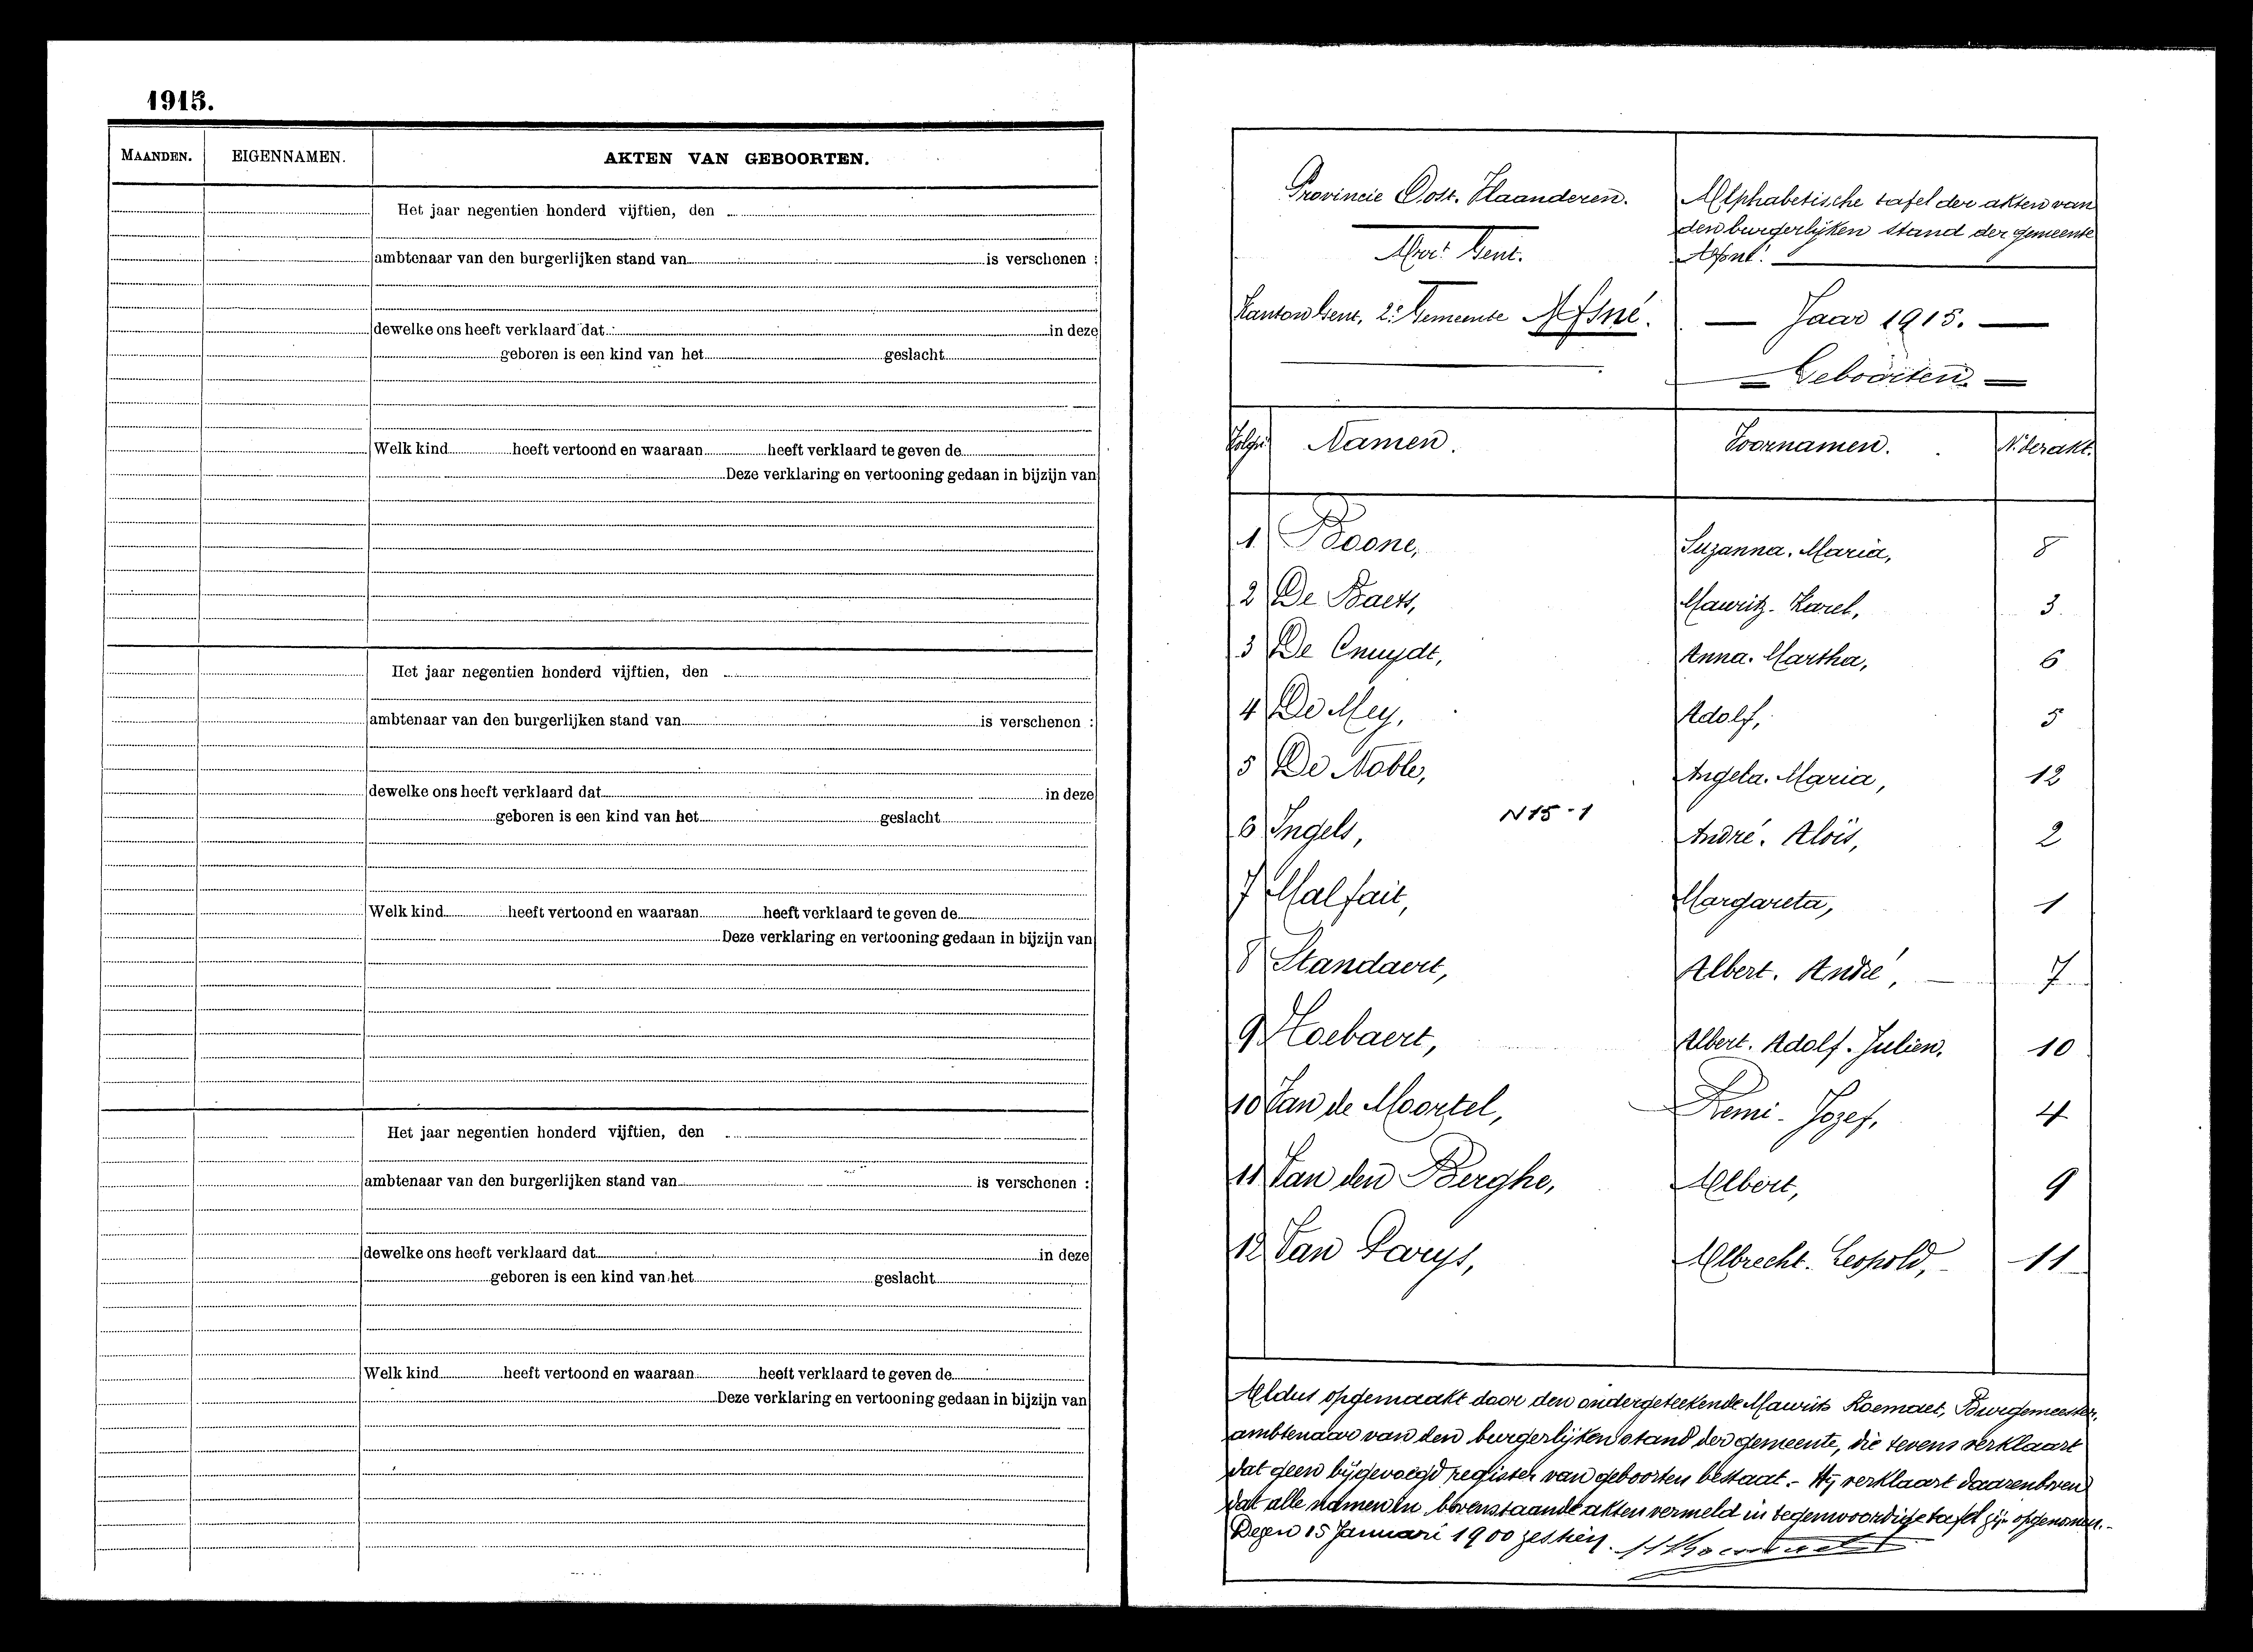 1915.
MAANDEN. EIGENNAMEN. AKTEN VAN GEBOORTEN.
Het jaar negentien honderd vijftien, den
ambtenaar van den burgerlijken stand van is verschenen :
dewelke ons heeft verklaard dat in deze
geboren is een kind van het geslacht
Welk kind heeft vertoond en waaraan heeft verklaard te geven de
Deze verklaring en vertooning gedaan in bijzijn van
Het jaar negentien honderd vijftien, den
ambtenaar van den burgerlijken stand van is verschenen :
dewelke ons heeft verklaard dat in deze
geboren is een kind van het geslacht
Welk kind heeft vertoond en waaraan heeft verklaard te geven de
Deze verklaring en vertooning gedaan in bijzijn van
Het jaar negentien honderd vijftien, den
ambtenaar van den burgerlijken stand van is verschenen :
dewelke ons heeft verklaard dat in deze
geboren is een kind van het geslacht
Welk kind heeft vertoond en waaraan heeft verklaard te geven de
Deze verklaring en vertooning gedaan in bijzijn van
Provincie Oost. Vlaanderen.
Arrt Gent.
Kanton Gent, 2e Gemeente Afsné.
Alphabetische tafel der akten van
den burgerlijken stand der gemeente
Afsné.
— Jaar 1915. —
Geboorten.
Volgnr Namen. Voornamen. Nr der akt.
1 Boone, Suzanna. Maria, 8
2 De Baets, Maurits. Karel, 3
3 De Cnuydt, Anna. Martha, 6
4 De Mey, Adolf, 5
5 De Noble, Angela. Maria, 12
N15-1
6 Ingels, André. Aloïs, 2
7 Malfait, Margareta, 1
8 Standaert, Albert. André, 7
9 Hoebaert, Albert. Adolf. Julien, 10
10 Van de Moortel, Remi. Jozef, 4
11 Van den Berghe, Albert, 9
12 Van Parys, Albrecht. Leopold, 11
Aldus opgemaakt door den ondergeteekende Maurits Roemaet, Burgemeester,
ambtenaar van den burgerlijken stand der gemeente, die tevens verklaart
dat geen bijgevoegd register van geboorten bestaat. - Hij verklaart daarenboven
dat alle namen in bovenstaande akten vermeld in tegenwoordige tafel zijn opgenomen. -
Dezen 15 Januari 1900 zestien.